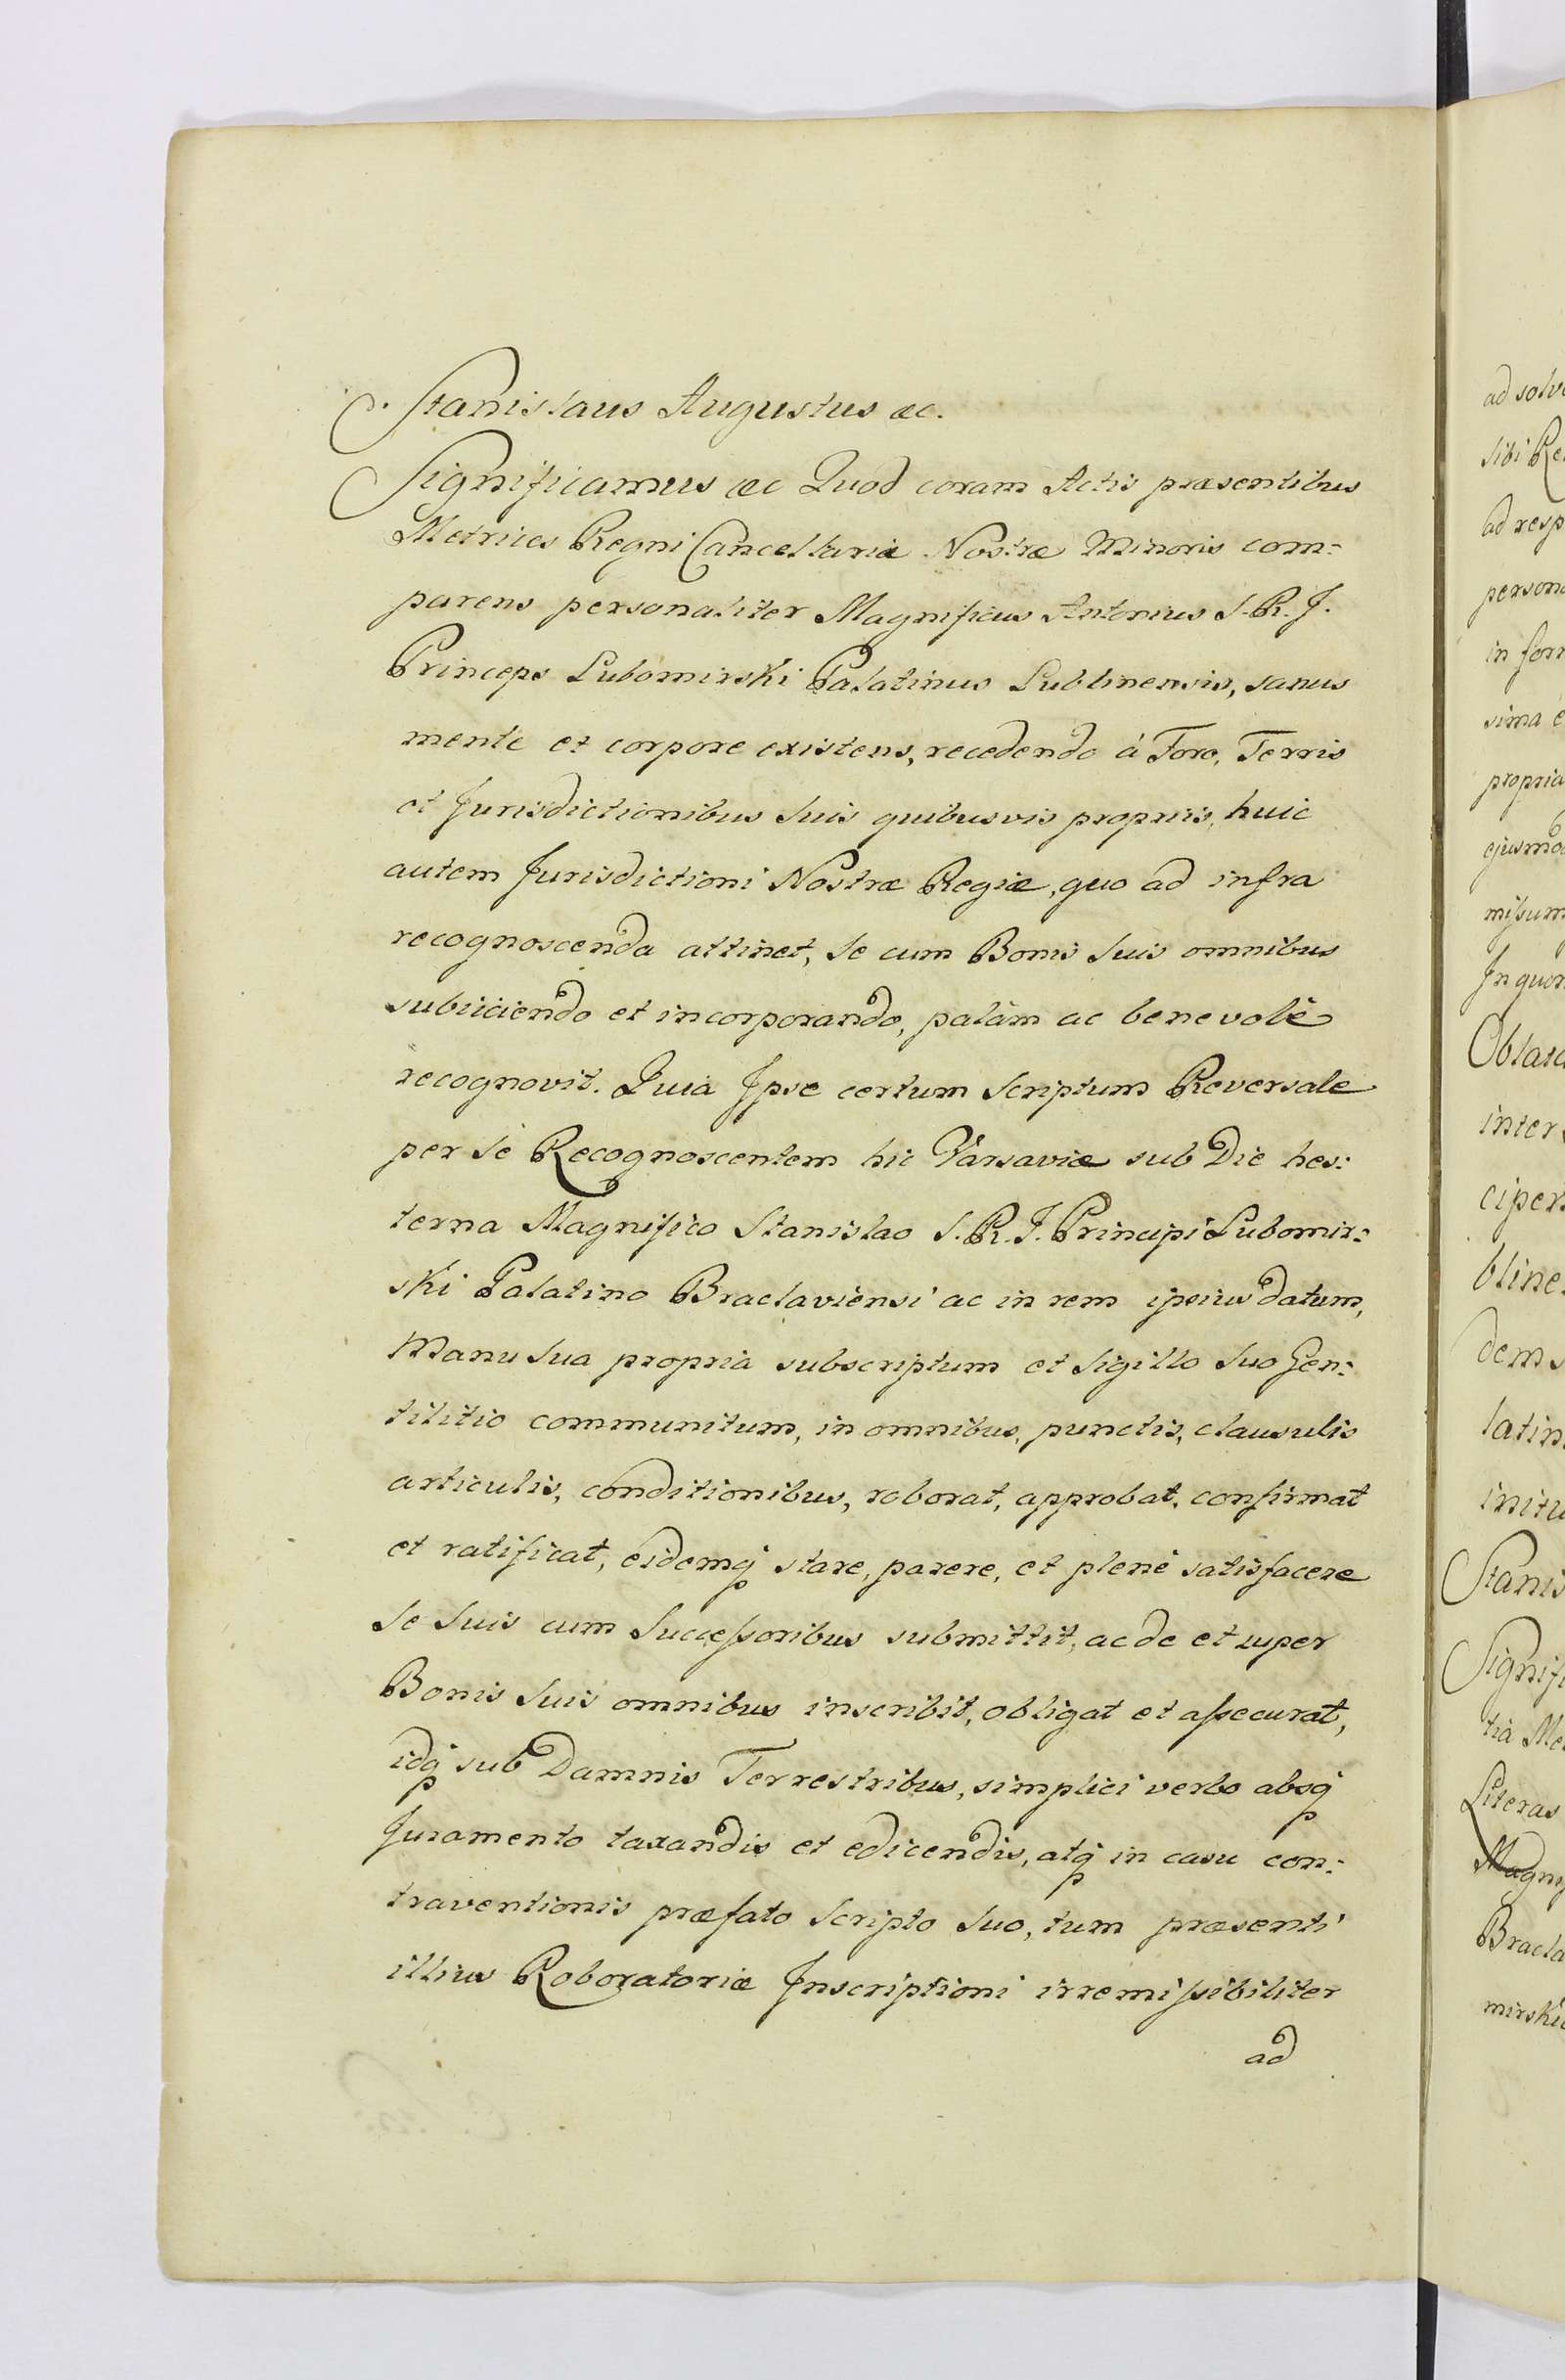 Stanislaus Augustus &c.
Significamus &c Quod coram Actis præsentibus
Metrices Regni Cancellariæ Nostræ Minoris com=
parens personaliter Magnificus Antonius S. R. J.
Princeps Lubomirski Palatinus Lublinensis, sanus
mente et corpore existens, recedendo á Foro, Terris
et Jurisdictionibus Suis quibusvis propriis, huic
autem Jurisdictioni Nostræ Regiæ, quo ad infra
recognoscenda attinet, Se cum Bonis Suis omnibus
subiiciendo et incorporando, palàm ac benevolè
recognovit. Quia Jpse certum Scriptum Reversale
per Se Recognoscentem hic Varsaviæ sub Die hes=
terna Magnifico Stanislao S. R. J. Principi Lubomir=
ski Palatino Braclaviensi ac in rem ipsius datum,
Manu Sua propria subscriptum et Sigillo Suo Gen=
tilitio communitum, in omnibus, punctis, clausulis
articulis, conditionibus, roborat, approbat, confirmat
et ratificat, eidemq stare, parere, et plenè satisfacere
Se Suis cum Successoribus submittit, ac de et super
Bonis Suis omnibus inscribit, obligat et assecurat,
idq sub Damnis Terrestribus, simplici verbo absq
Juramento taxandis et edicendis, atq in casu con=
traventionis præfato Scripto Suo, tum præsenti
illius Roboratoriæ Jnscriptioni irremissibiliter
ad
ad solv
sibi Re
ad resp
person
in for
sima e
propria
ejusmo
missum
Jn quor
Oblata
inter
ciper
bline
dem
latin
initu
Stanis
Signifi
tia Me
Literas
Magnif
Bracla
mirski